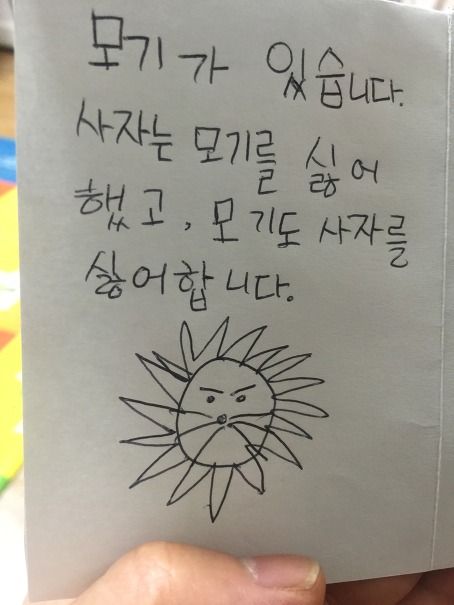 모기가 있습니다.
사자는 모기를 싫어
했고, 모기도 사자를
싫어합니다.